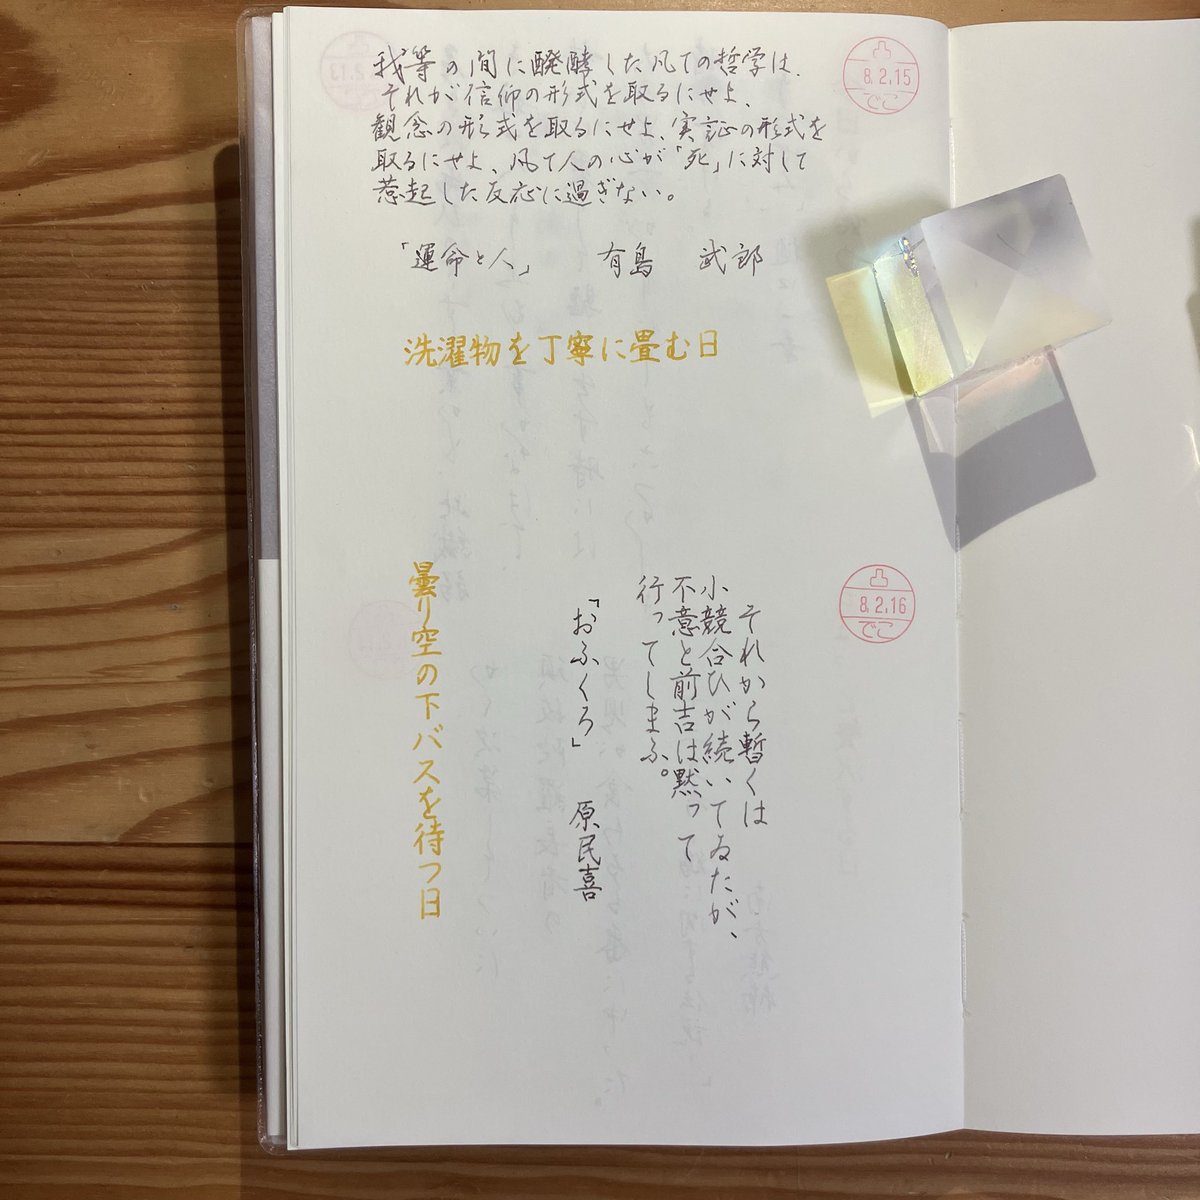 凸
8.2.15
でこ
我等の間に醗酵した凡ての哲学は、
それが信仰の形式を取るにせよ、
観念の形式を取るにせよ、実証の形式を
取るにせよ、凡て人の心が「死」に対して
惹起した反応に過ぎない。
「運命と人」 有島 武郎
洗濯物を丁寧に畳む日
凸
8.2.16
でこ
それから暫くは
小競合ひが続いてゐたが、
不意と前吉は黙って
行ってしまふ。
「おふくろ」 原民喜
曇り空の下バスを待つ日